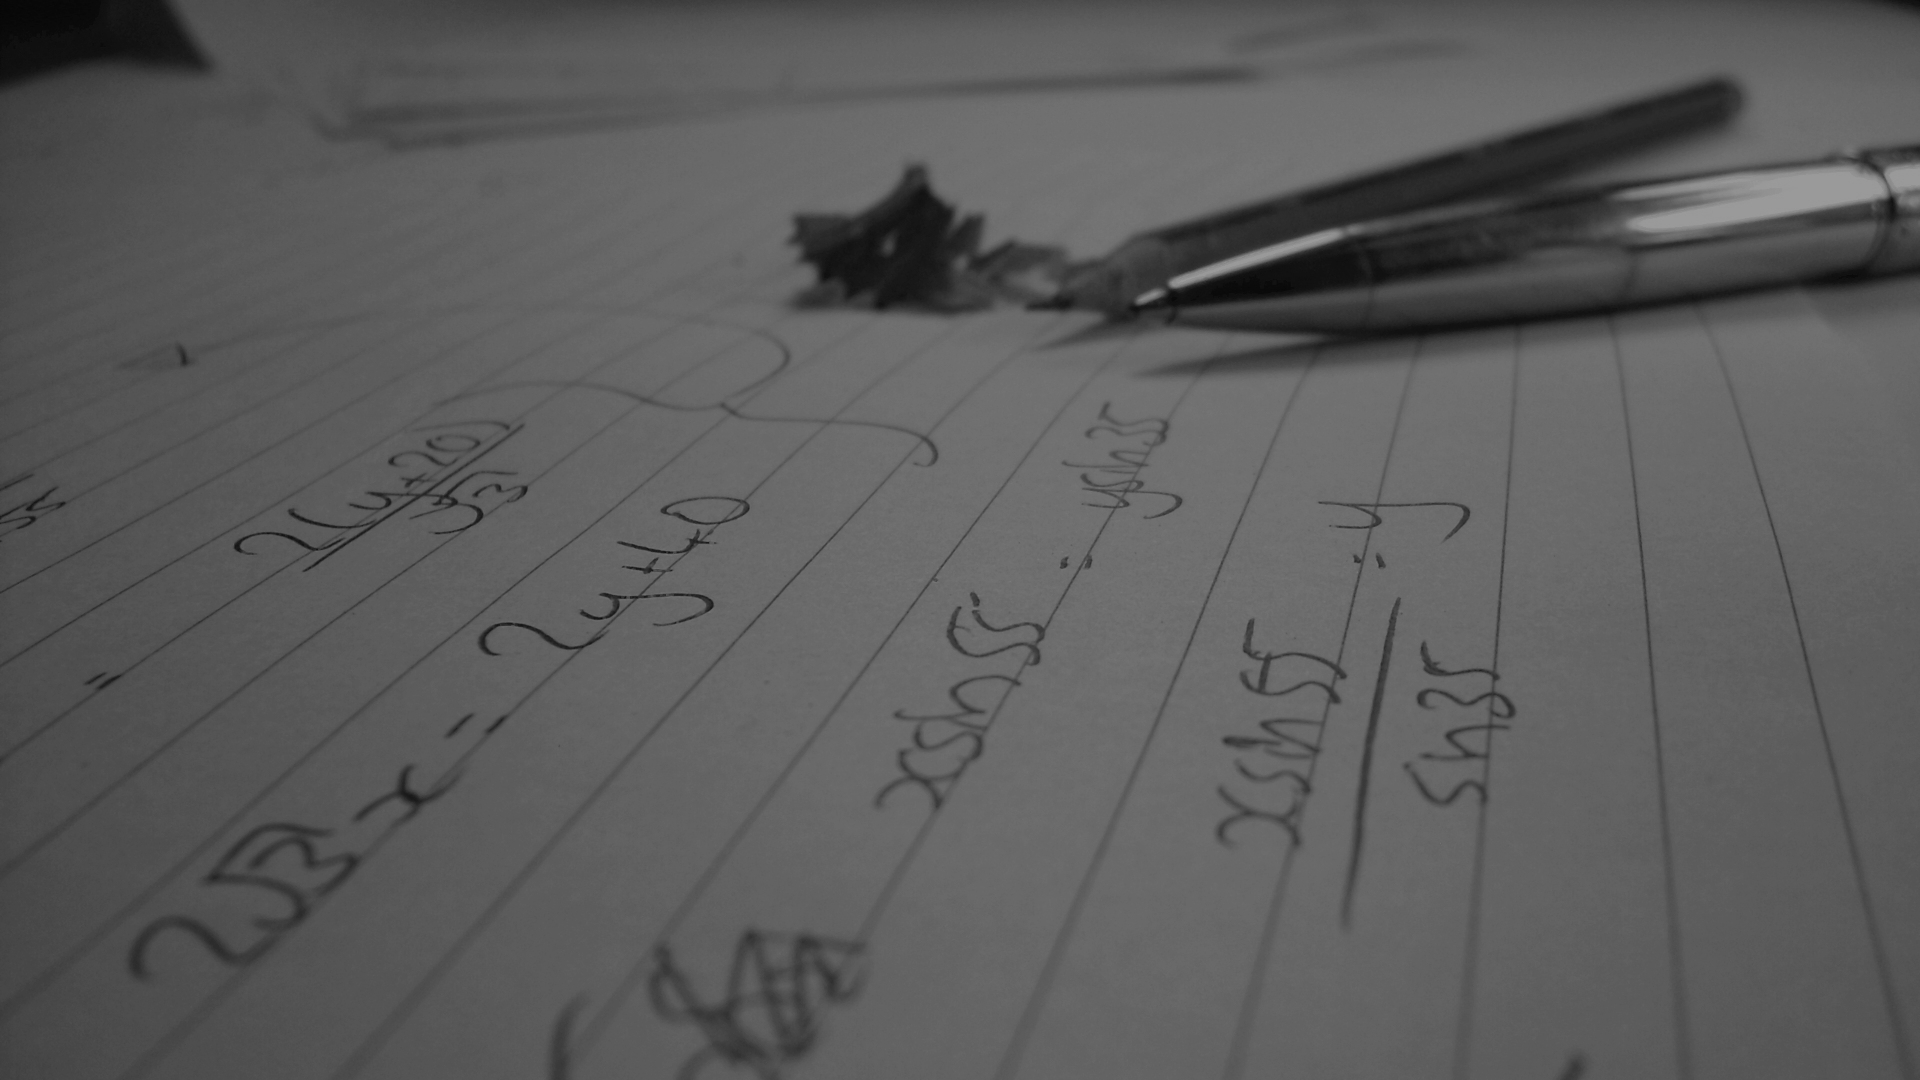 = 2(y+20) / y√3
2√3 x = 2y+40
xsin55 = ysin35
xsin55 / sin35 = y